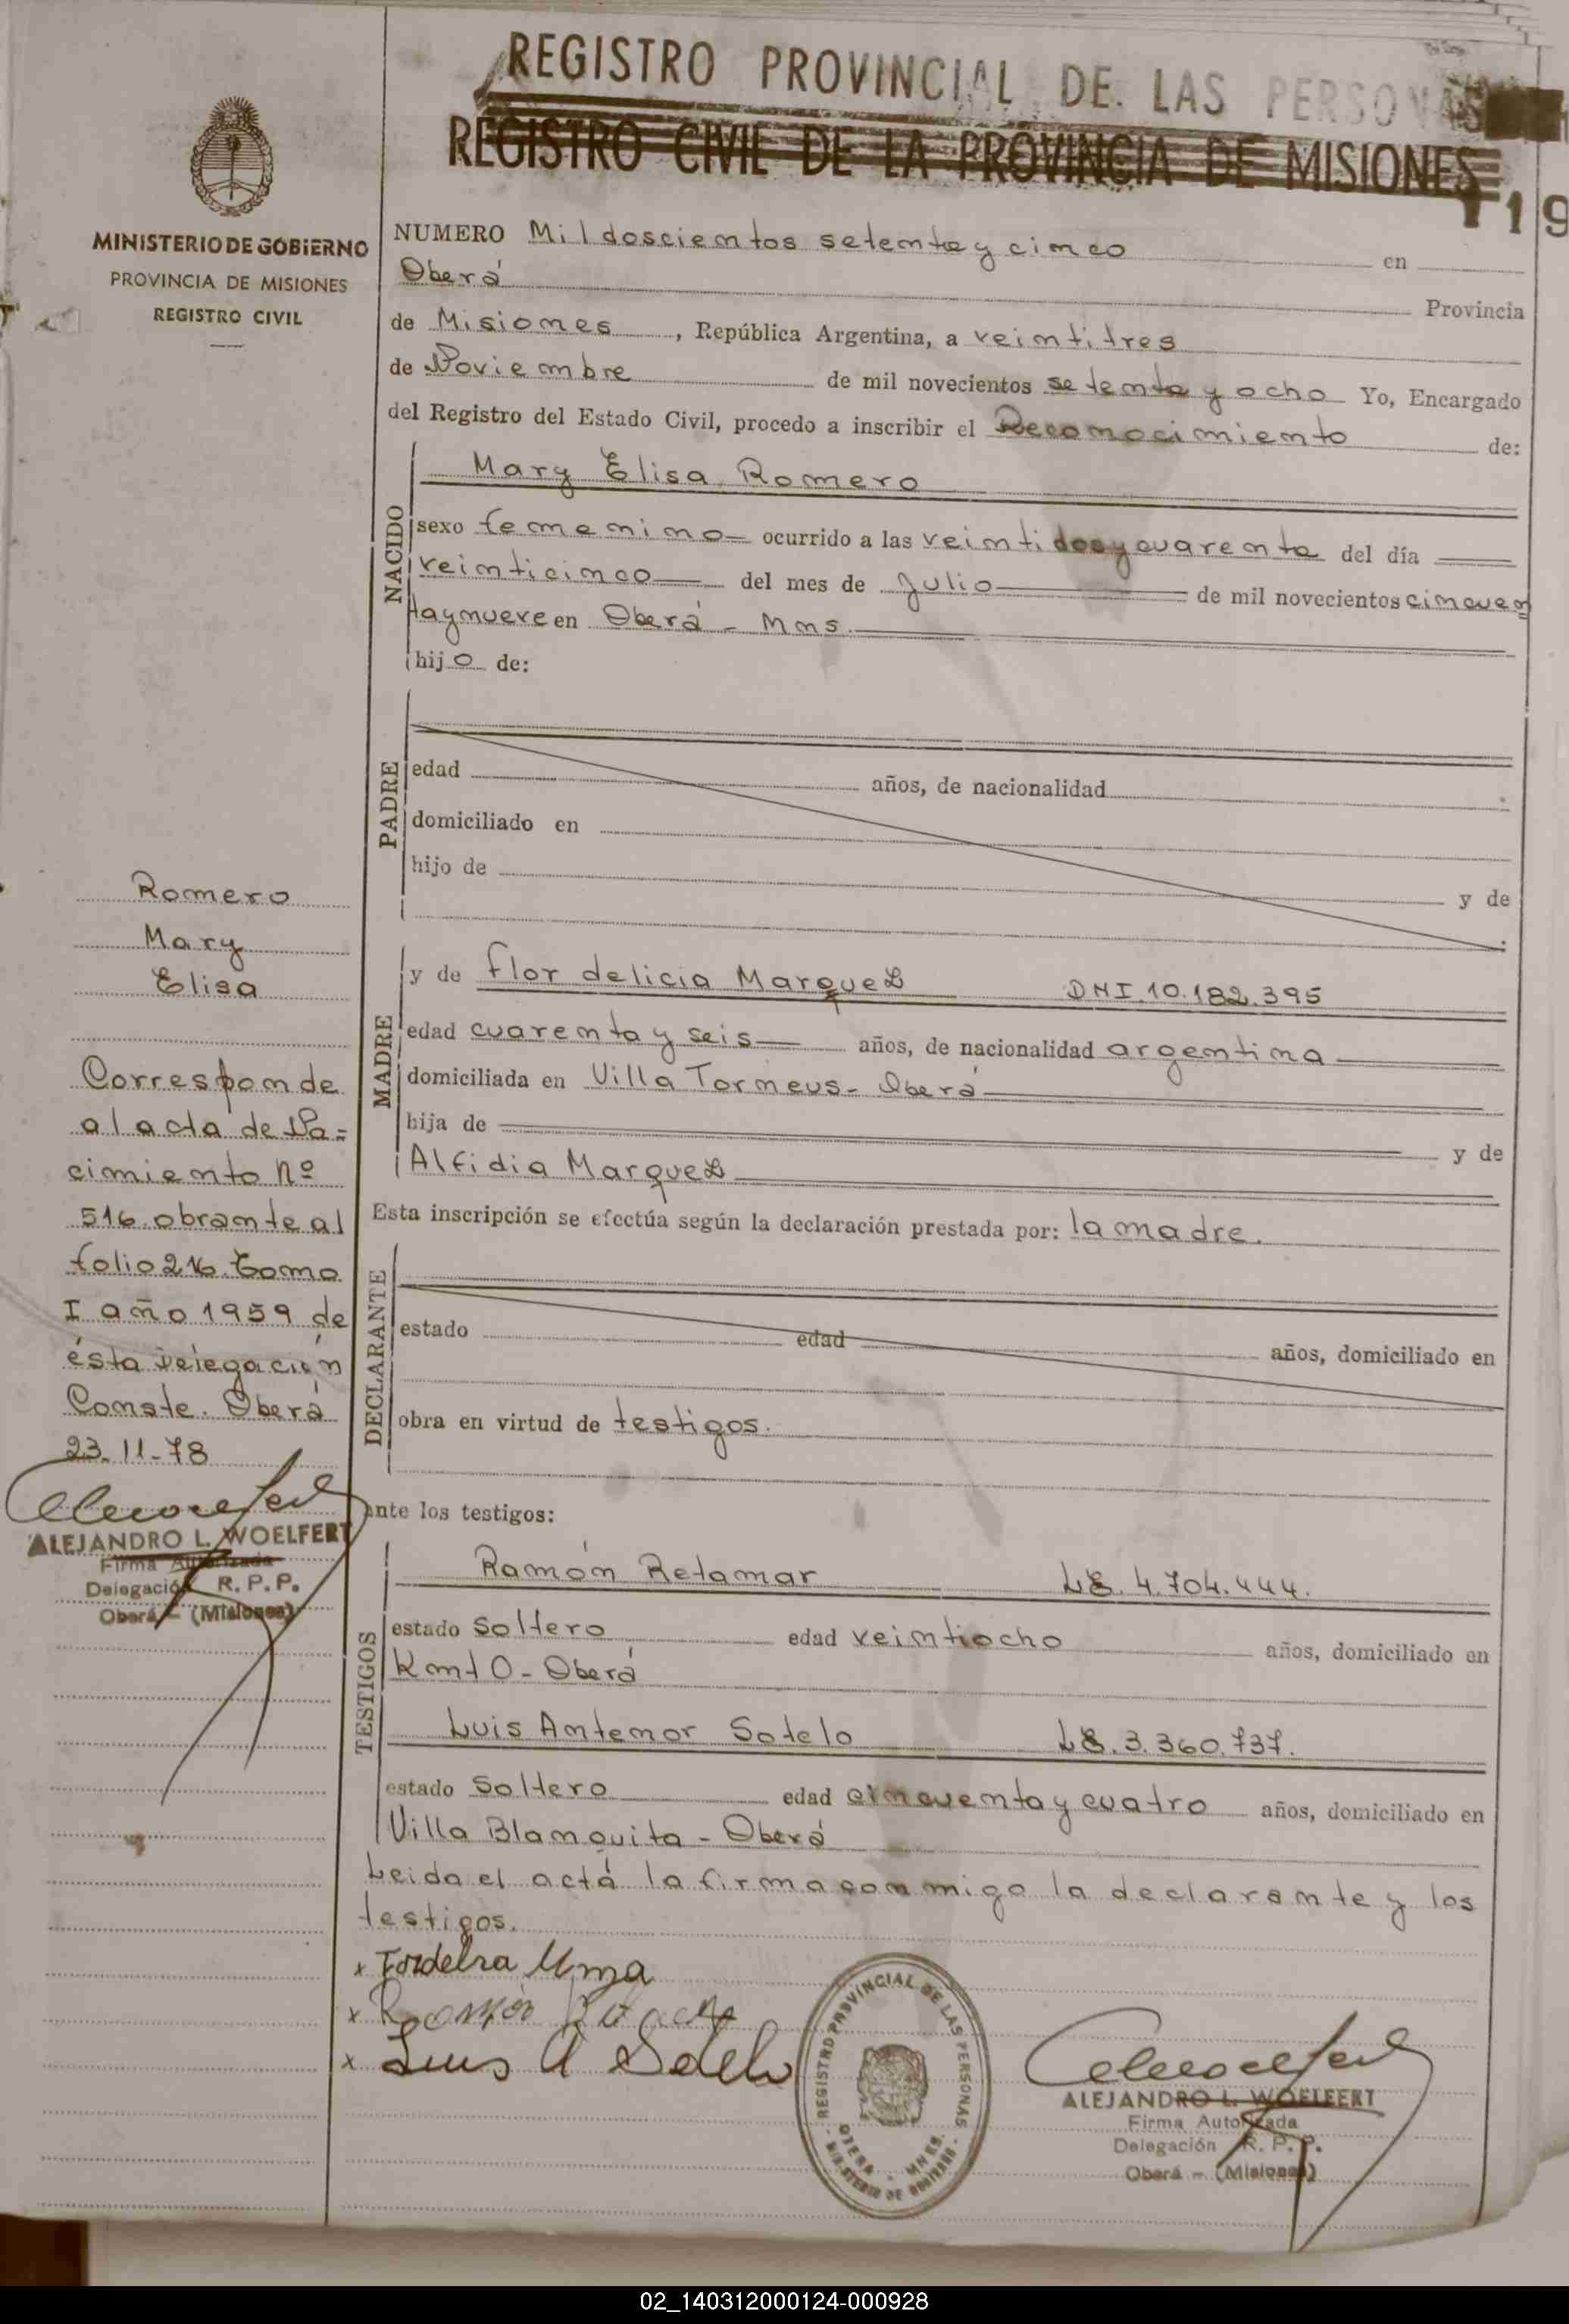 REGISTRO PROVINCIAL DE LAS PERSONAS
REGISTRO CIVIL DE LA PROVINCIA DE MISIONES
119
MINISTERIO DE GOBIERNO
PROVINCIA DE MISIONES
REGISTRO CIVIL
NUMERO Mil doscientos setenta y cinco en
Oberá Provincia
de Misiones, República Argentina, a veintitres
de Noviembre de mil novecientos setenta y ocho Yo, Encargado
del Registro del Estado Civil, procedo a inscribir el Reconocimiento de:
NACIDO
Mary Elisa Romero
sexo femenino ocurrido a las veintidos y cuarenta del día
veinticinco del mes de Julio de mil novecientos cincuen
ta y nueve en Oberá - Mns.
hijo de:
PADRE
edad años, de nacionalidad
domiciliado en
hijo de y de
MADRE
y de Flor delicia Marquez DNI.10.182.395
edad cuarenta y seis años, de nacionalidad argentina
domiciliada en Villa Torneus - Oberá
hija de y de
Alfidia Marquez
Esta inscripción se efectúa según la declaración prestada por: la madre.
DECLARANTE
estado edad años, domiciliado en
obra en virtud de testigos.
ante los testigos:
TESTIGOS
Ramón Retamar LE. 4.704.444.
estado Soltero edad veintiocho años, domiciliado en
Km10 - Oberá
Luis Antenor Sotelo LE. 3.360.737.
estado Soltero edad cincuenta y cuatro años, domiciliado en
Villa Blanquita - Oberá
Leida el actá la firma conmigo la declarante y los
testigos.
x
x Ramón
x Luis A Sotelo
REGISTRO PROVINCIAL DE LAS PERSONAS
OBERA - MNES.
MINISTERIO DE GOBIERNO
ALEJANDRO L. WOELFERT
Firma Autorizada
Delegación R. P. P.
Oberá - (Misiones)
Romero
Mary
Elisa
Corresponde
al acta de Na=
cimiento Nº
516 obrante al
folio 216 Tomo
I año 1959 de
ésta Delegación
Conste. Oberá
23-11-78
ALEJANDRO L. WOELFERT
Firma Autorizada
Delegación R. P. P.
Oberá - (Misiones)
02_140312000124-000928